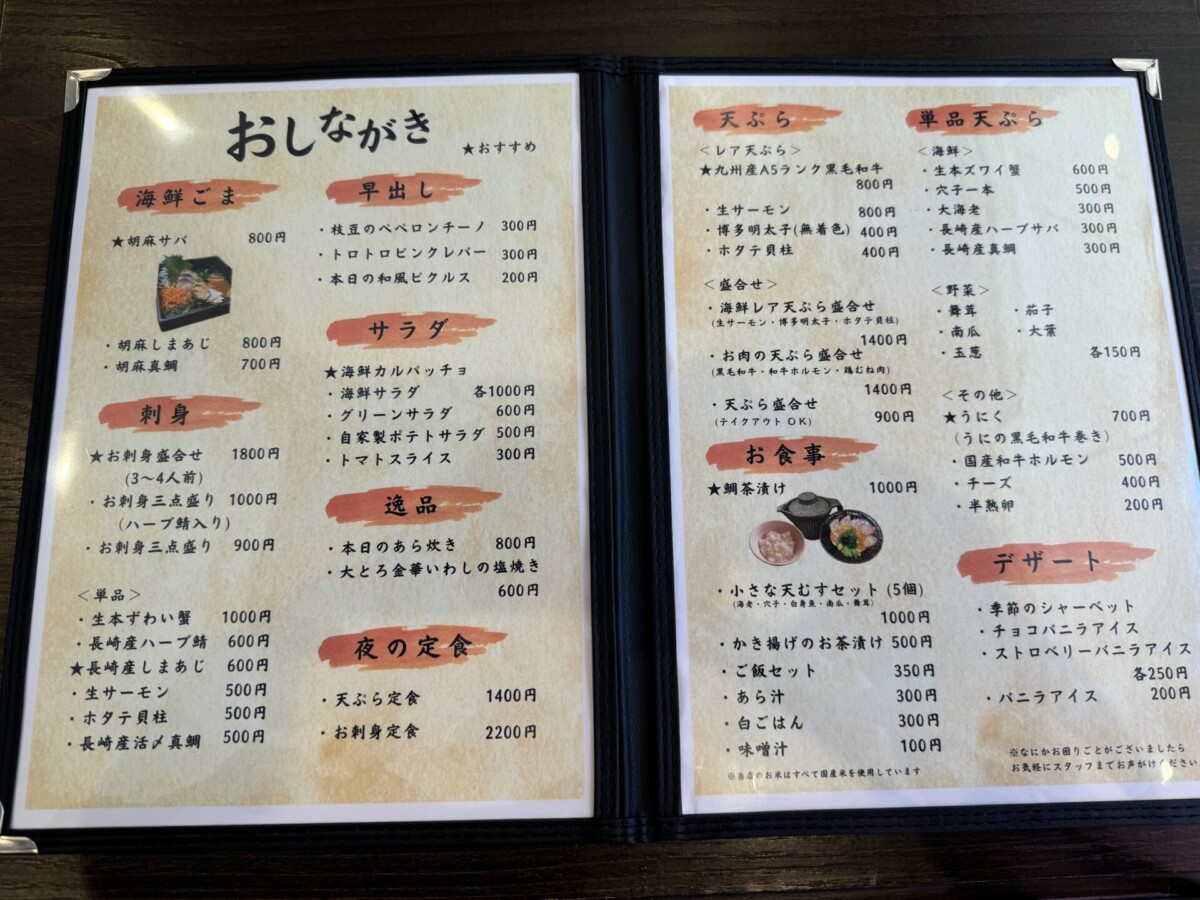 おしながき
★おすすめ
海鮮ごま
★胡麻サバ 800円
・胡麻しまあじ 800円
・胡麻真鯛 700円
刺身
★お刺身盛合せ 1800円
(3〜4人前)
・お刺身三点盛り 1000円
(ハーブ鯖入り)
・お刺身三点盛り 900円
＜単品＞
・生本ずわい蟹 1000円
・長崎産ハーブ鯖 600円
★長崎産しまあじ 600円
・生サーモン 500円
・ホタテ貝柱 500円
・長崎産活〆真鯛 500円
早出し
・枝豆のペペロンチーノ 300円
・トロトロピンクレバー 300円
・本日の和風ピクルス 200円
サラダ
★海鮮カルパッチョ
・海鮮サラダ 各1000円
・グリーンサラダ 600円
・自家製ポテトサラダ 500円
・トマトスライス 300円
逸品
・本日のあら炊き 800円
・大とろ金華いわしの塩焼き
600円
夜の定食
・天ぷら定食 1400円
・お刺身定食 2200円
天ぷら
＜レア天ぷら＞
★九州産A5ランク黒毛和牛
800円
・生サーモン 800円
・博多明太子(無着色) 400円
・ホタテ貝柱 400円
＜盛合せ＞
・海鮮レア天ぷら盛合せ
(生サーモン・博多明太子・ホタテ貝柱)
1400円
・お肉の天ぷら盛合せ
(黒毛和牛・和牛ホルモン・鶏むね肉)
1400円
・天ぷら盛合せ 900円
(テイクアウト OK)
お食事
★鯛茶漬け 1000円
・小さな天むすセット (5個)
(海老・穴子・白身魚・南瓜・舞茸)
1000円
・かき揚げのお茶漬け 500円
・ご飯セット 350円
・あら汁 300円
・白ごはん 300円
・味噌汁 100円
※当店のお米はすべて国産米を使用しています
単品天ぷら
＜海鮮＞
・生本ズワイ蟹 600円
・穴子一本 500円
・大海老 300円
・長崎産ハーブサバ 300円
・長崎産真鯛 300円
＜野菜＞
・舞茸 ・茄子
・南瓜 ・大葉
・玉葱 各150円
＜その他＞
★うにく 700円
(うにの黒毛和牛巻き)
・国産和牛ホルモン 500円
・チーズ 400円
・半熟卵 200円
デザート
・季節のシャーベット
・チョコバニラアイス
・ストロベリーバニラアイス
各250円
・バニラアイス 200円
※なにかお困りごとがございましたら
お気軽にスタッフまでお声がけください